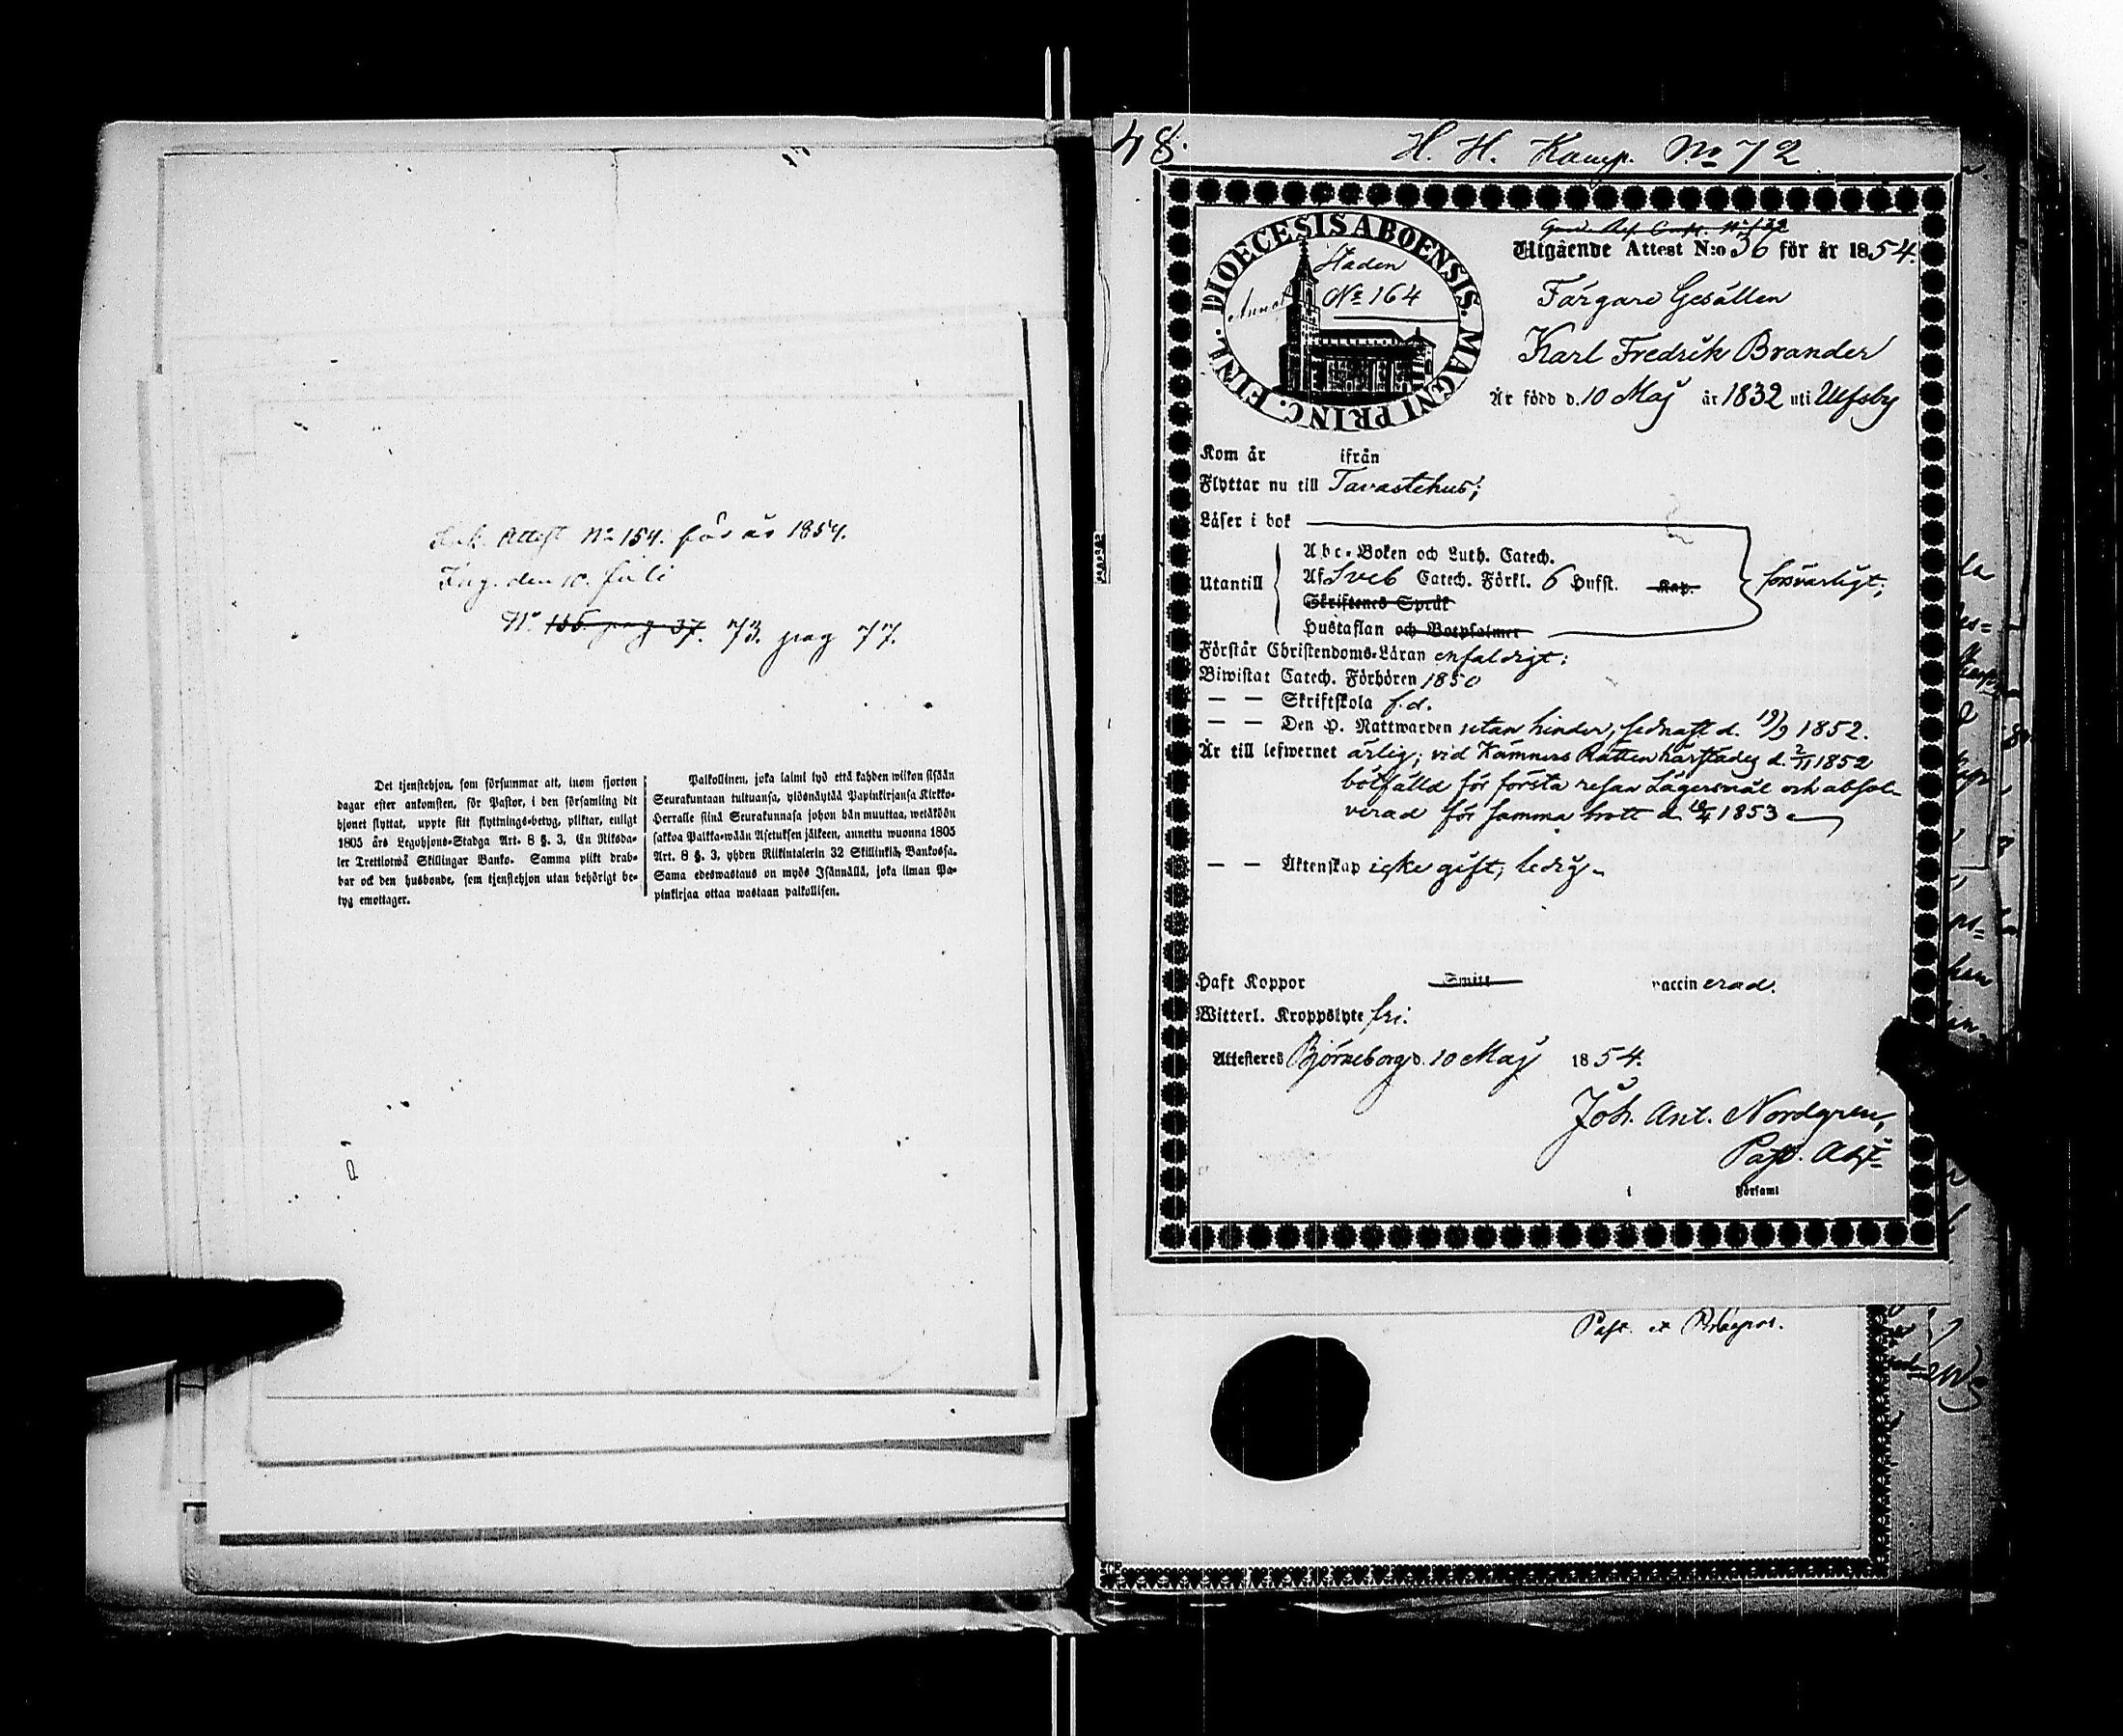 Ank. Attest No 154. för år 1854.
Ing. den 10. Juli
No. 156. pag 37. 73. pag 77.
Det tjenstehjon, som försummar att, inom fjorton
dagar efter ankomsten, för Pastor, i den församling dit
hjonet flyttat, uppte sitt flyttnings-betyg, pliktar, enligt
1805 års Legohjons-Stadga Art. 8 §. 3, En Riksda-
ler Trettiotwå Skillingar Banko. Samma plikt drab-
bar ock den husbonde, som tjenstehjon utan behörigt be-
tyg emottager.
Palkollinen, joka laimi lyö että kahden wiikon sisään
Seurakuntaan tultuansa, ylösnäytää Papinkirjansa Kirkko-
Herralle siinä Seurakunnasa johon hän muuttaa, wetäköön
sakkoa Palkka-wään Asetuksen jälkeen, annettu wuonna 1805
Art. 8 §. 3, yhden Riikintalerin 32 Skillinkiä Bankossa.
Sama edeswastaus on myös Isännällä, joka ilman Pa-
pinkirjaa ottaa wastaan palkollisen.
48.
H. H. Kamp. No 72
DIOECESIS ABOENSIS. MAGNI PRINC. FINL.
Staden
No 164
Utgående Attest N:o 36 för år 1854.
Färgare Gesällen
Karl Fredrik Brander
Är född d. 10 Maj år 1832 uti Ulfsby
Kom år ifrån
Flyttar nu till Tavastehus;
Läser i bok
Abc-Boken och Luth. Catech.
Utantill Af Sveb Catech. Förkl. 6 Hufst. Kap. försvarligt;
Skriftenes Språk
Hustaflan och Botpsalmer
Förstår Christendoms-Läran enfaldigt;
Biwistat Catech. Förhören 1850
— — Skriftskola f.d.
— — Den H. Nattwarden utan hinder, sednast d. 19/9 1852.
Är till lefwernet ärlig; vid Kämners Rätten härstädes d. 2/11 1852
bötfälld för första resan Lägersmål och absol-
verad för samma brott d. 1853
— — Äktenskap icke gift, ledig.
Haft Koppor Smitt vaccinerad.
Witterl. Kroppslyte fri.
Attesteres Björneborg d. 10 Maj 1854.
Joh. Ant. Nordgren,
Past. Adj.
i Församl
Past. et Præpos.